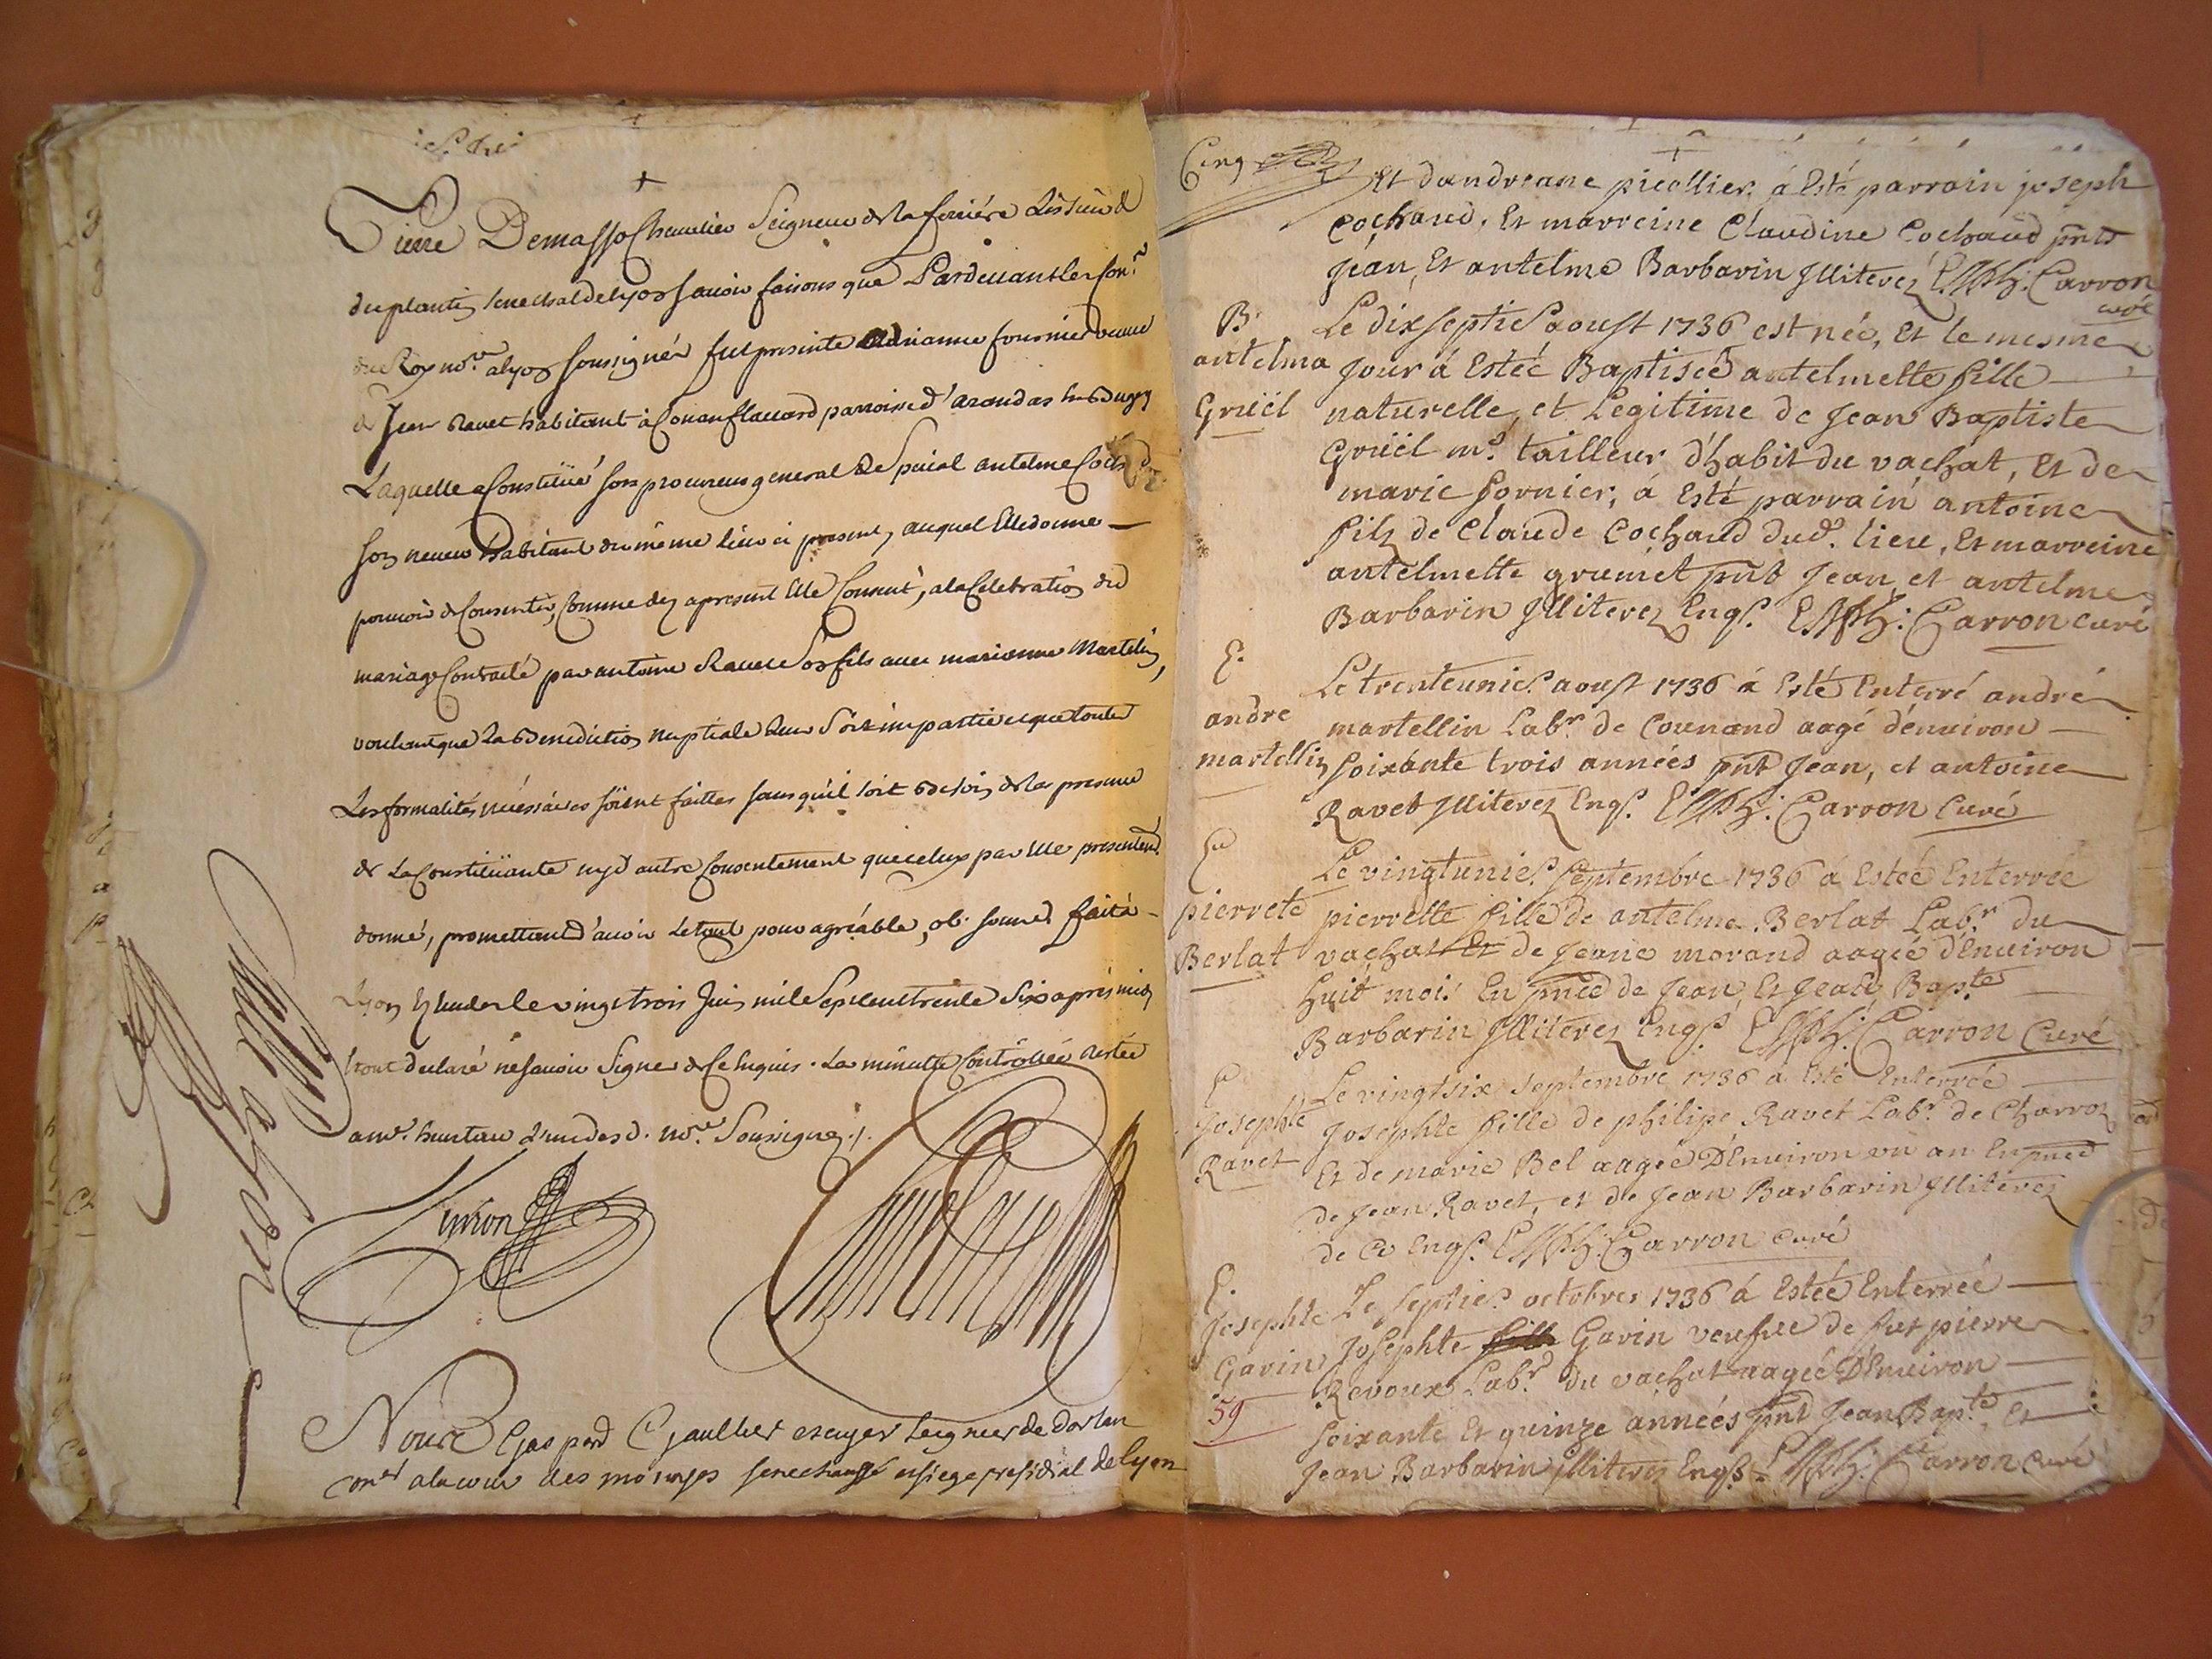 Pierre Demasso Chevalier Seigneur de la ferriére Lissieu &
du plantis senechal de Lyon scauoir faisons que Pardeuant les Con.rs
du Roy no.res a lyon soussignés fut presente adrianne fournier veuve
de Jean Ravet habitant à Conan flaccard parroisse d'arandas en Bugey
Laquelle a Constitüé son procureur general & Special antelme
son neveu habitant du même lieu ci present, auquel Elle donne
pouvoir de Consentir, Comme des apresent Elle Consent, a la Celebration du
mariage Contracté par antoine Ravet Son fils avec marianne Martelin,
voulant que la Benediction nuptiale leur Soit impartie et que toutes
Les formalités nécéssaires soïent faittes sans qu'il soit Besoin de la presence
de La Constitüante ny d'autre Consentement que celuy par Elle presentem.t
donné, promettant d'avoir le tout pour agréable, ob. soum. & fait à
Lyon Ez Etudes le vingt trois Juin mil Sept cent trente Six apres midy
& ont declaré ne scavoir Signer de Ce Enquis. La minutte Controllée restée
a m.e l'un des d. no.res Soussignez ./.
Nous Gaspard Gaultier escuyer seigneur de dortan
con.er a la cour des monoyes senechaussé et siege presidial de lyon
Cinq
Et dandreane picollier á Esté parrain joseph
Cochaud, Et marreine Claudine Cochaud pnts
Jean, Et antelme Barbarin Illiterez Carron
curé
B.
antelma
Grüél
Le dixseptie. aoust 1736 est née, Et le mesme
Jour á Esteé Baptiseé antelmette fille
naturelle, et Legitime de Jean Baptiste
Grüél m.e tailleur d'habit du vachat, Et de
marie fornier, á Esté parrain antoine
fils de Claude Cochaud dud. lieu, Et marreine
antelmette grumet pnt Jean, et antelme
Barbarin Illiterez Enqs. Carron curé
E.
andre
martellin
Le trenteunie. aoust 1736 á Esté Enterré andré
martellin Lab.r de Counand aagé dénuiron
Soixante trois années pnt Jean, et antoine
Ravet Illiterez Enqs. Carron Curé
E
pierrete
Berlat
Le vingtunie. Septembre 1736 á Esteé Enterreé
pierrette fille de antelme Berlat Lab.r du
vachat Et de Jeane morand aageé dEnuiron
huit mois En pnce de Jean, Et Jean Bap.te
Barbarin Illiterez Enqs. Carron Curé
E
Josephte
Ravet
Le vingtsix Septembre 1736 á Esté Enterreé
Josephte fille de philipe Ravet Lab.r de Charroz
Et de marie Bel aageé DEnuiron vn an En pnce
de Jean Ravet, et de Jean Barbarin Illiterez
de Ce Enqs. Carron curé
E.
Josephte
Gavin
59
Le septie. octobres 1736 á Esteé Enterreé
Josephte fille Gavin veufve de fut pierre
Revoux Lab.r du vachat aageé DEnuiron
Soixante Et quinze années pnt Jean Bap.te Et
Jean Barbarin Illiterez Enqs. Carron curé